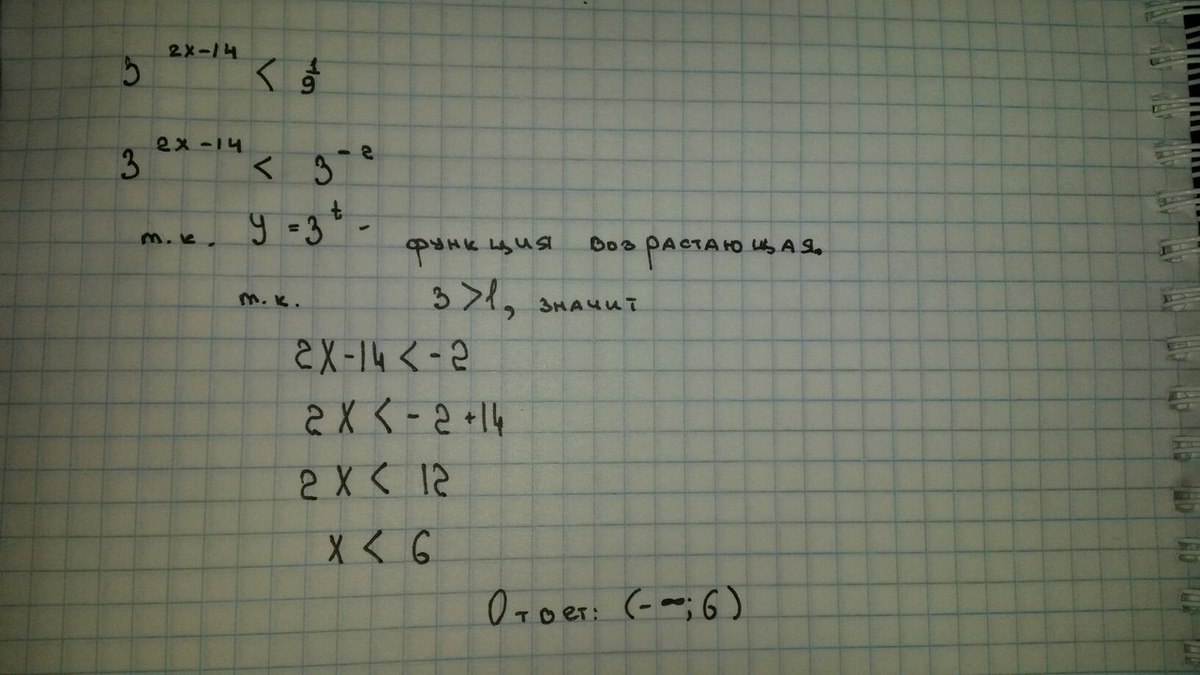 3^{2x-14} < 1/9
3^{2x-14} < 3^{-2}
т.к. y = 3^t - функция возрастающая.
т.к. 3 > 1, значит
2x-14 < -2
2x < -2+14
2x < 12
x < 6
Ответ: (-∞; 6)